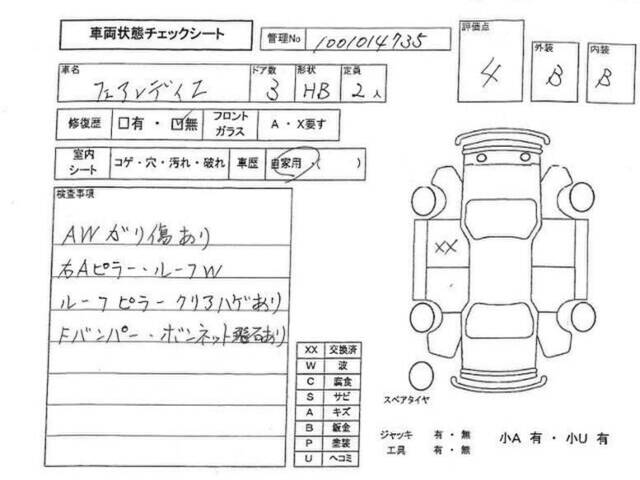 車両状態チェックシート
管理No 1001014735
評価点 4
外装 B
内装 B
車名 フェアレディZ
ドア数 3
形状 HB
定員 2人
修復歴 □有・☑無
フロントガラス A・X要す
室内シート コゲ・穴・汚れ・破れ
車歴 自家用・( )
検査事項
AW ガリ傷あり
右Aピラー・ルーフW
ルーフ ピラー クリアハゲあり
Fバンパー・ボンネット飛石あり
XX
XX 交換済
W 波
C 腐食
S サビ
A キズ
B 鈑金
P 塗装
U ヘコミ
スペアタイヤ
ジャッキ 有・無
工具 有・無
小A 有・小U 有